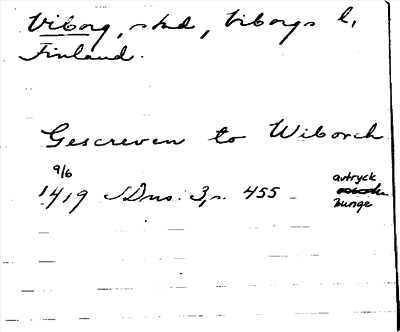 Viborg, stad, Viborgs l,
Finland.
Gescreven to Wiborch
9/6
1419 SDns. 3, s. 455
avtryck
Bunge